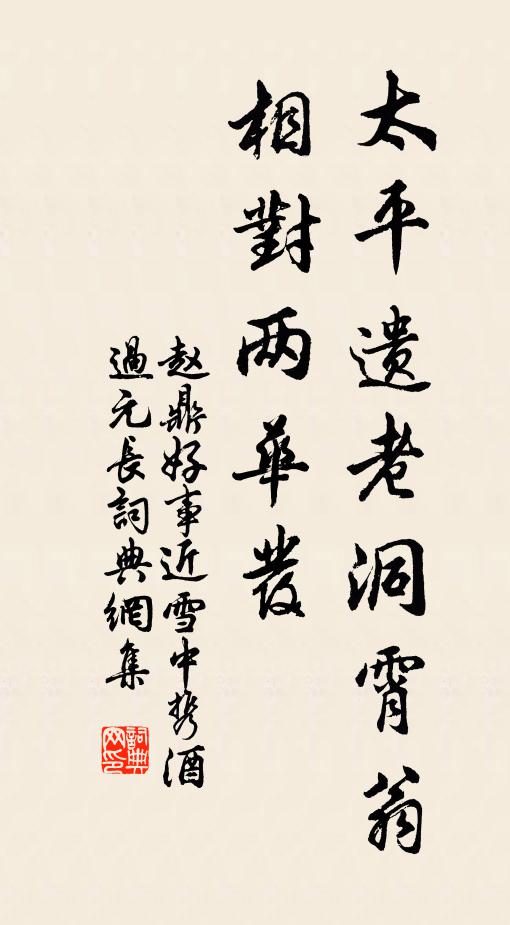 太平遗老洞霄翁
相對两華發
赵鼎好事近雪中携酒
過元長詞典網集
詞典网印